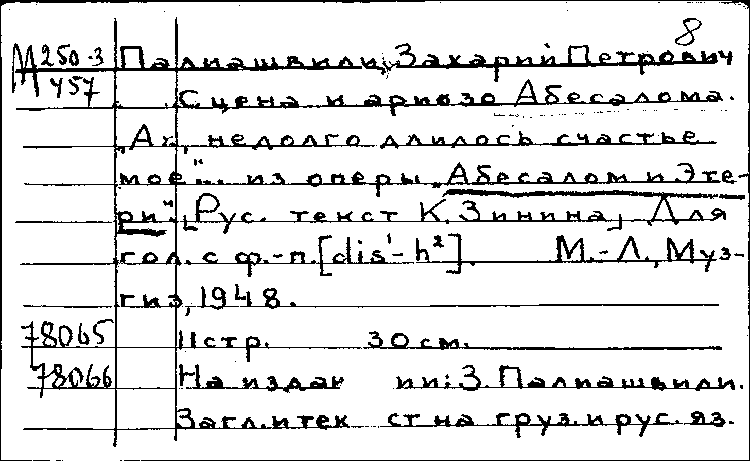 8
М 250-3 Палиашвили, Захарий Петрович
457 Сцена и ариозо Абесалома.
„Ах, недолго длилось счастье
мое"... из оперы „Абесалом и Эте-
ри". [Рус. текст К. Зинина] Для
гол. с ф.-п. [dis¹-h²]. М.-Л., Муз-
гиз, 1948.
78065 11 стр. 30 см.
78066 На издан ии: З. Палиашвили.
Загл. и тек ст на груз. и рус. яз.